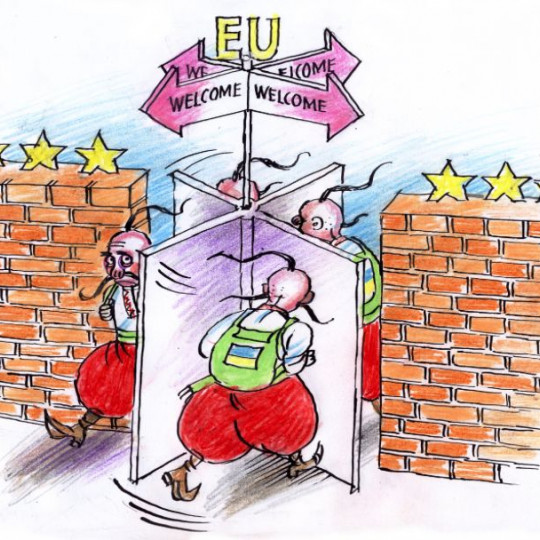 EU
WE ELCOME
WELCOME WELCOME